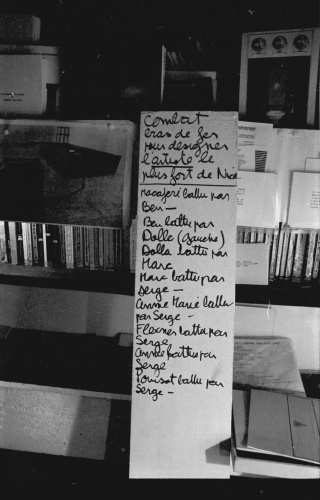 Combat
bras de fer
pour designer
l'artiste le
plus fort de Nice
macaferi battu par
Ben —
Ben battu par
Dolla (gauche)
Dolla battu par
Marc
Marc battu par
Serge —
Annie Marie battu
par Serge -
Flexner battu par
Serge
Annie battu par
Serge
Pouissot battu par
Serge —